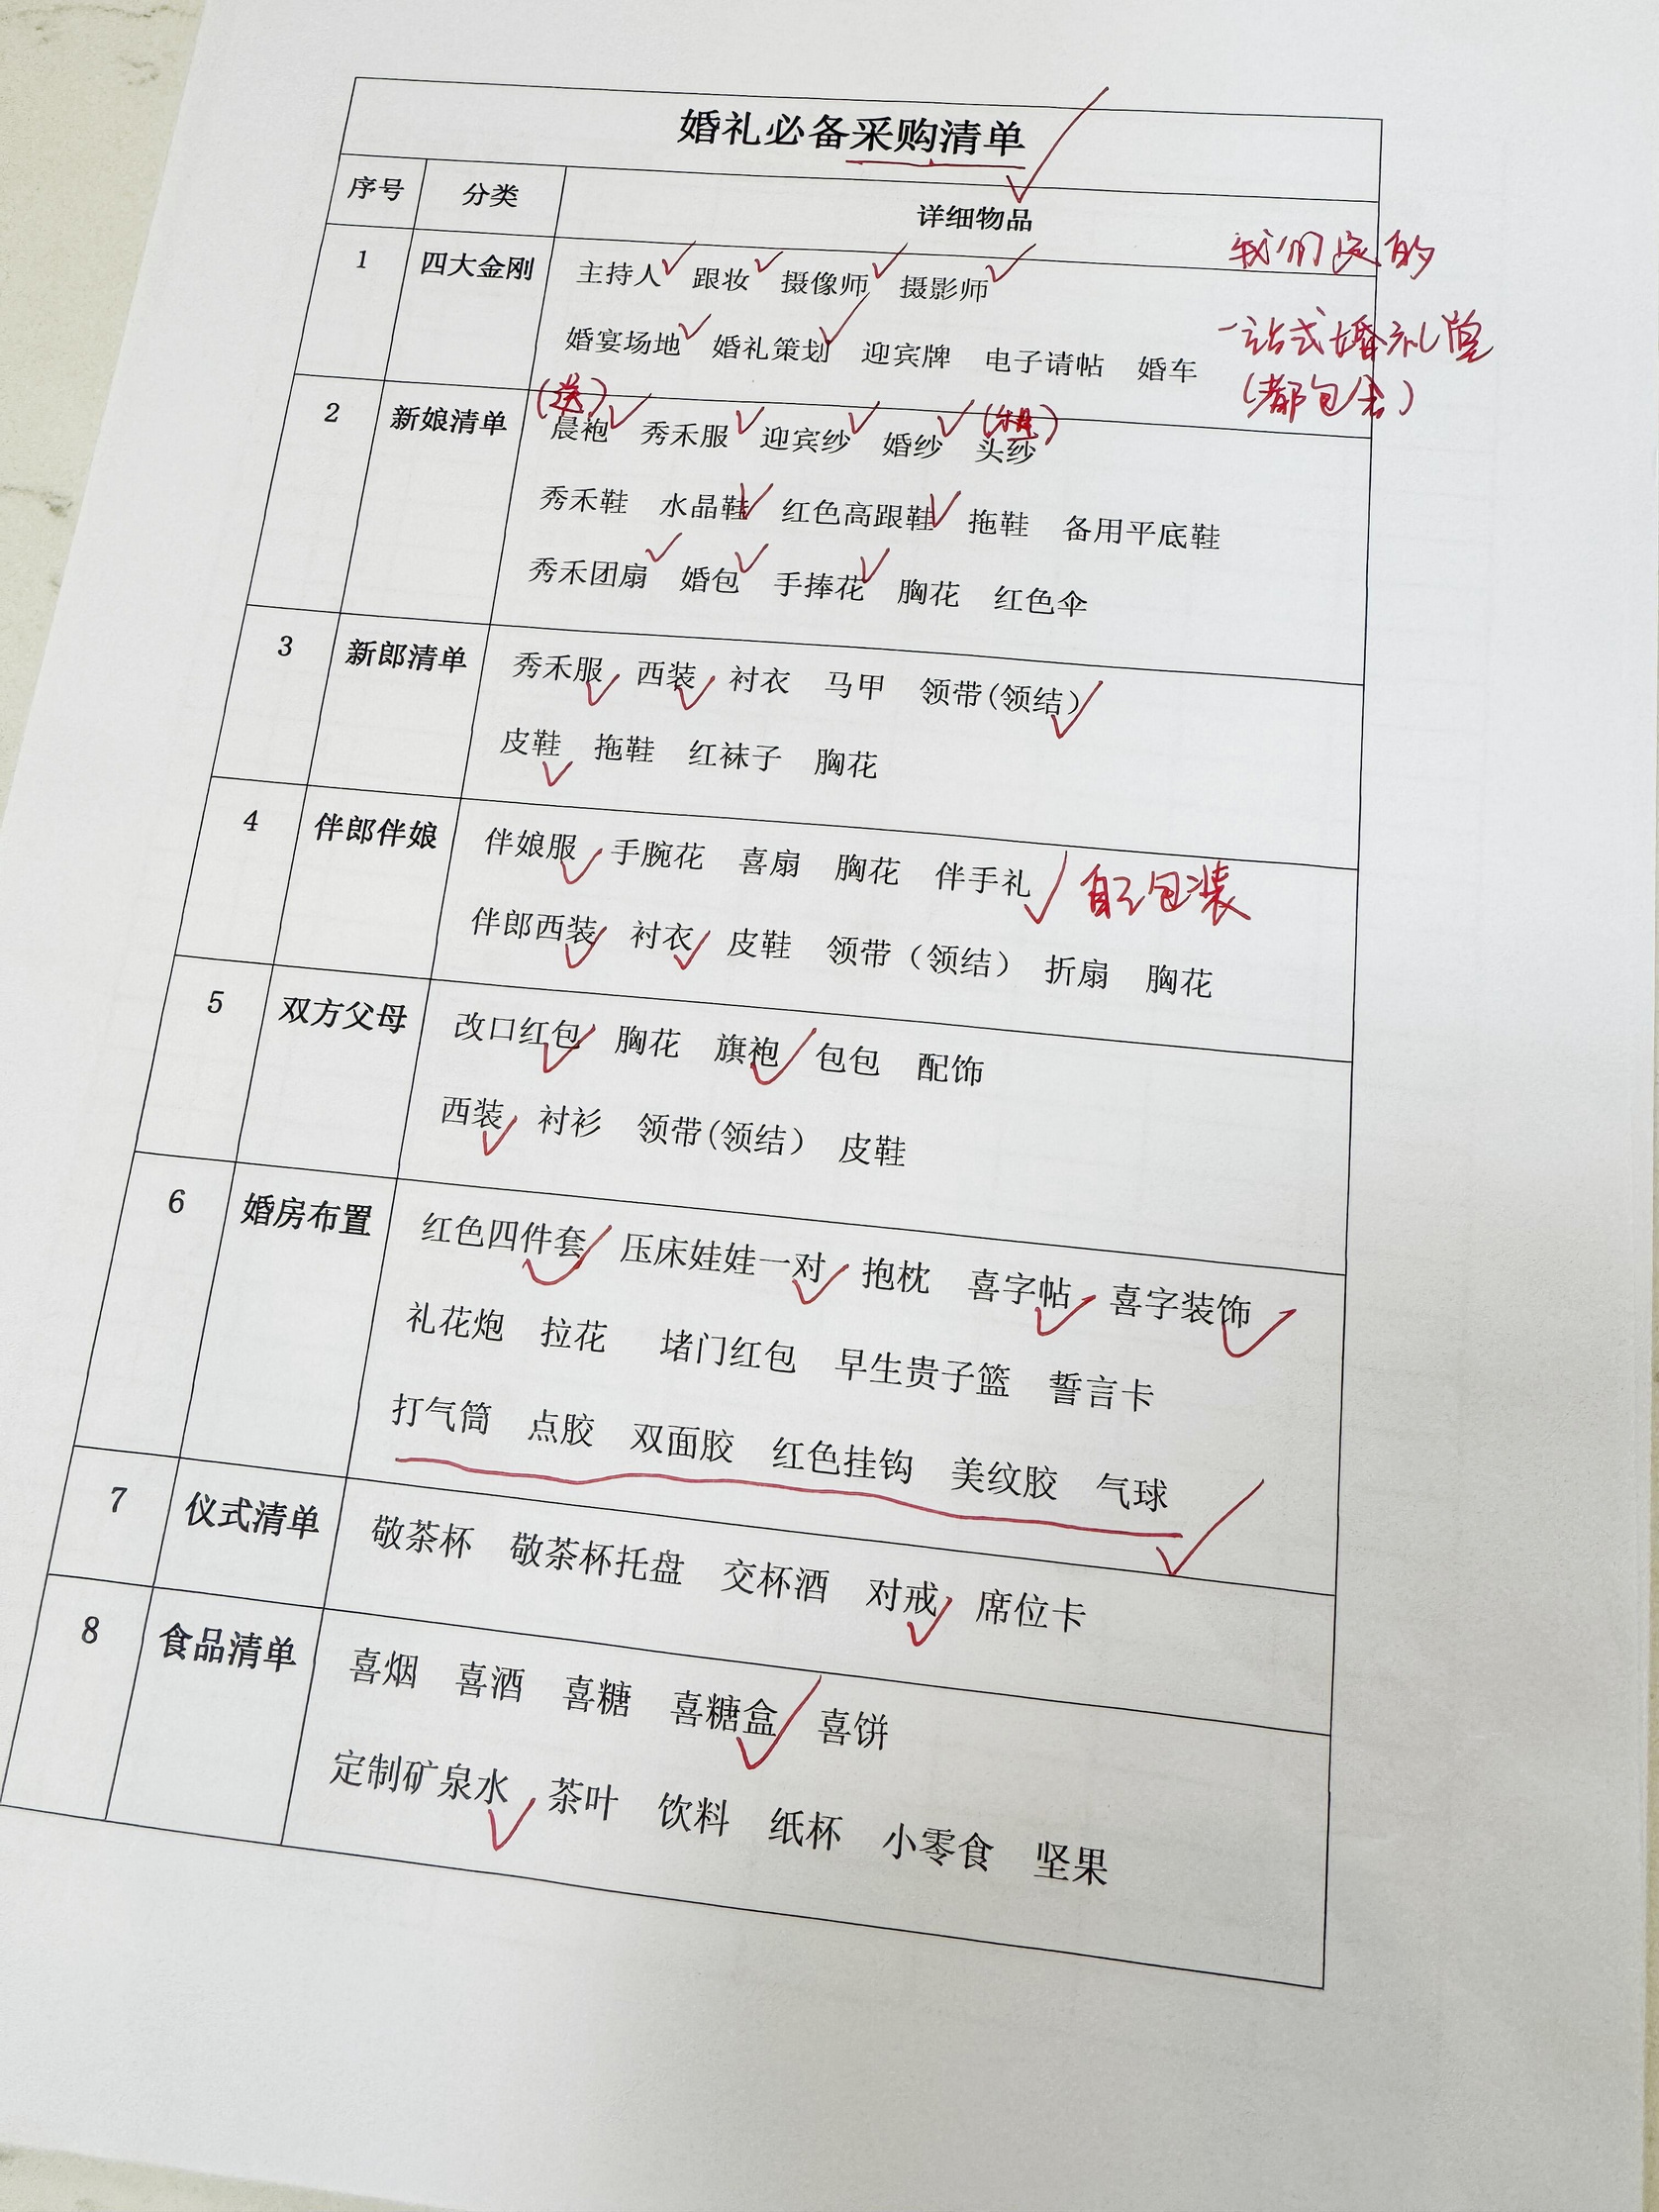 婚礼必备采购清单
序号 分类 详细物品
我们定的
1 四大金刚 主持人 跟妆 摄像师 摄影师
婚宴场地 婚礼策划 迎宾牌 电子请帖 婚车
一站式婚礼堂
(都包含)
(送)
2 新娘清单 晨袍 秀禾服 迎宾纱 婚纱 头纱
秀禾鞋 水晶鞋 红色高跟鞋 拖鞋 备用平底鞋
秀禾团扇 婚包 手捧花 胸花 红色伞
3 新郎清单 秀禾服 西装 衬衣 马甲 领带(领结)
皮鞋 拖鞋 红袜子 胸花
4 伴郎伴娘 伴娘服 手腕花 喜扇 胸花 伴手礼 自己包装
伴郎西装 衬衣 皮鞋 领带（领结） 折扇 胸花
5 双方父母 改口红包 胸花 旗袍 包包 配饰
西装 衬衫 领带(领结） 皮鞋
6 婚房布置 红色四件套 压床娃娃一对 抱枕 喜字帖 喜字装饰
礼花炮 拉花 堵门红包 早生贵子篮 誓言卡
打气筒 点胶 双面胶 红色挂钩 美纹胶 气球
7 仪式清单 敬茶杯 敬茶杯托盘 交杯酒 对戒 席位卡
8 食品清单 喜烟 喜酒 喜糖 喜糖盒 喜饼
定制矿泉水 茶叶 饮料 纸杯 小零食 坚果